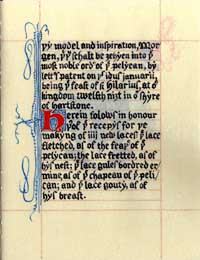 yy model and inspiration, Mor
gen, yt schalt be geyen into ye
most noble ord' of ye pelycan, by
lett's patent on ye idus januarii,
being ye feast of St Hilarius, at ye
kingdom twelfth nyt in ye shyre
of hartstone.
Herein folows in honour
yt of ye receyps for ye
makyng of iiij new laces ye lace
fletched, as of the feaþ of ye
pelycan; the lace fretted, as of
hys nest; ye lace gules bordred er
mine, as of ye chapeau of ye pely
can; and ye lace gouty, as of
hys breast.